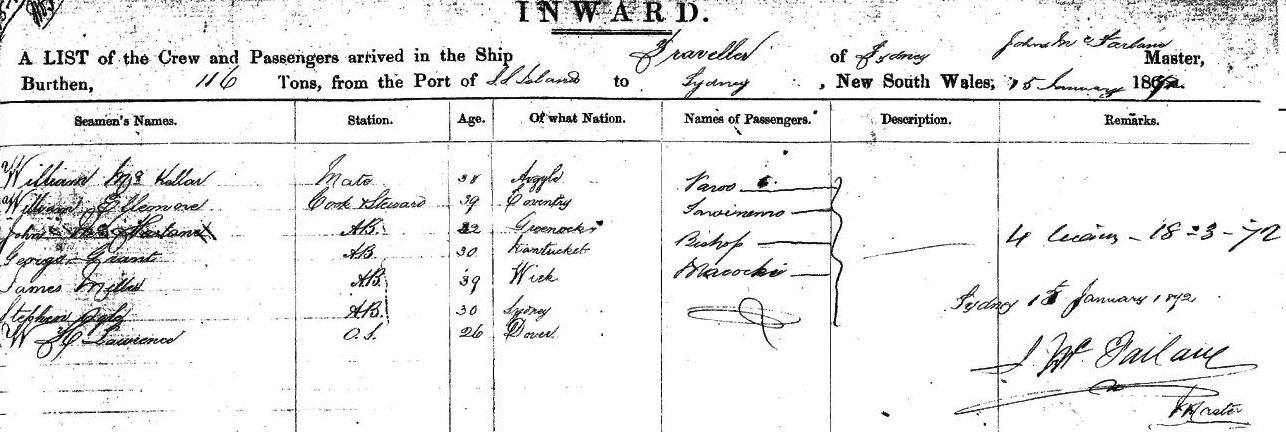 INWARD.
A LIST of the Crew and Passengers arrived in the Ship Traveller of Sydney John McFarlane Master,
Burthen, 116 Tons, from the Port of S.S. Island to Sydney, New South Wales, 15 January 1872.
Seamen's Names. Station. Age. Of what Nation. Names of Passengers. Description. Remarks.
William Mc Kellar Mate 38 Argyle
William Cook & Steward 39 Coventry
John Mc Farlane A.B. 22 Greenock Bishop 4 18-3-72
George Grant A.B. 30 Nantucket
James Miller A.B. 39 Wick
Stephen A.B. 30 Sydney Sydney 15 January 1872
W H Lawrence O.S. 26 Dover
J. Mc Farlane
Master